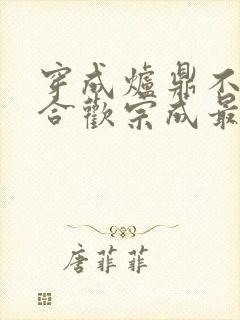 穿成爐鼎不
合歡宗成最
唐菲菲